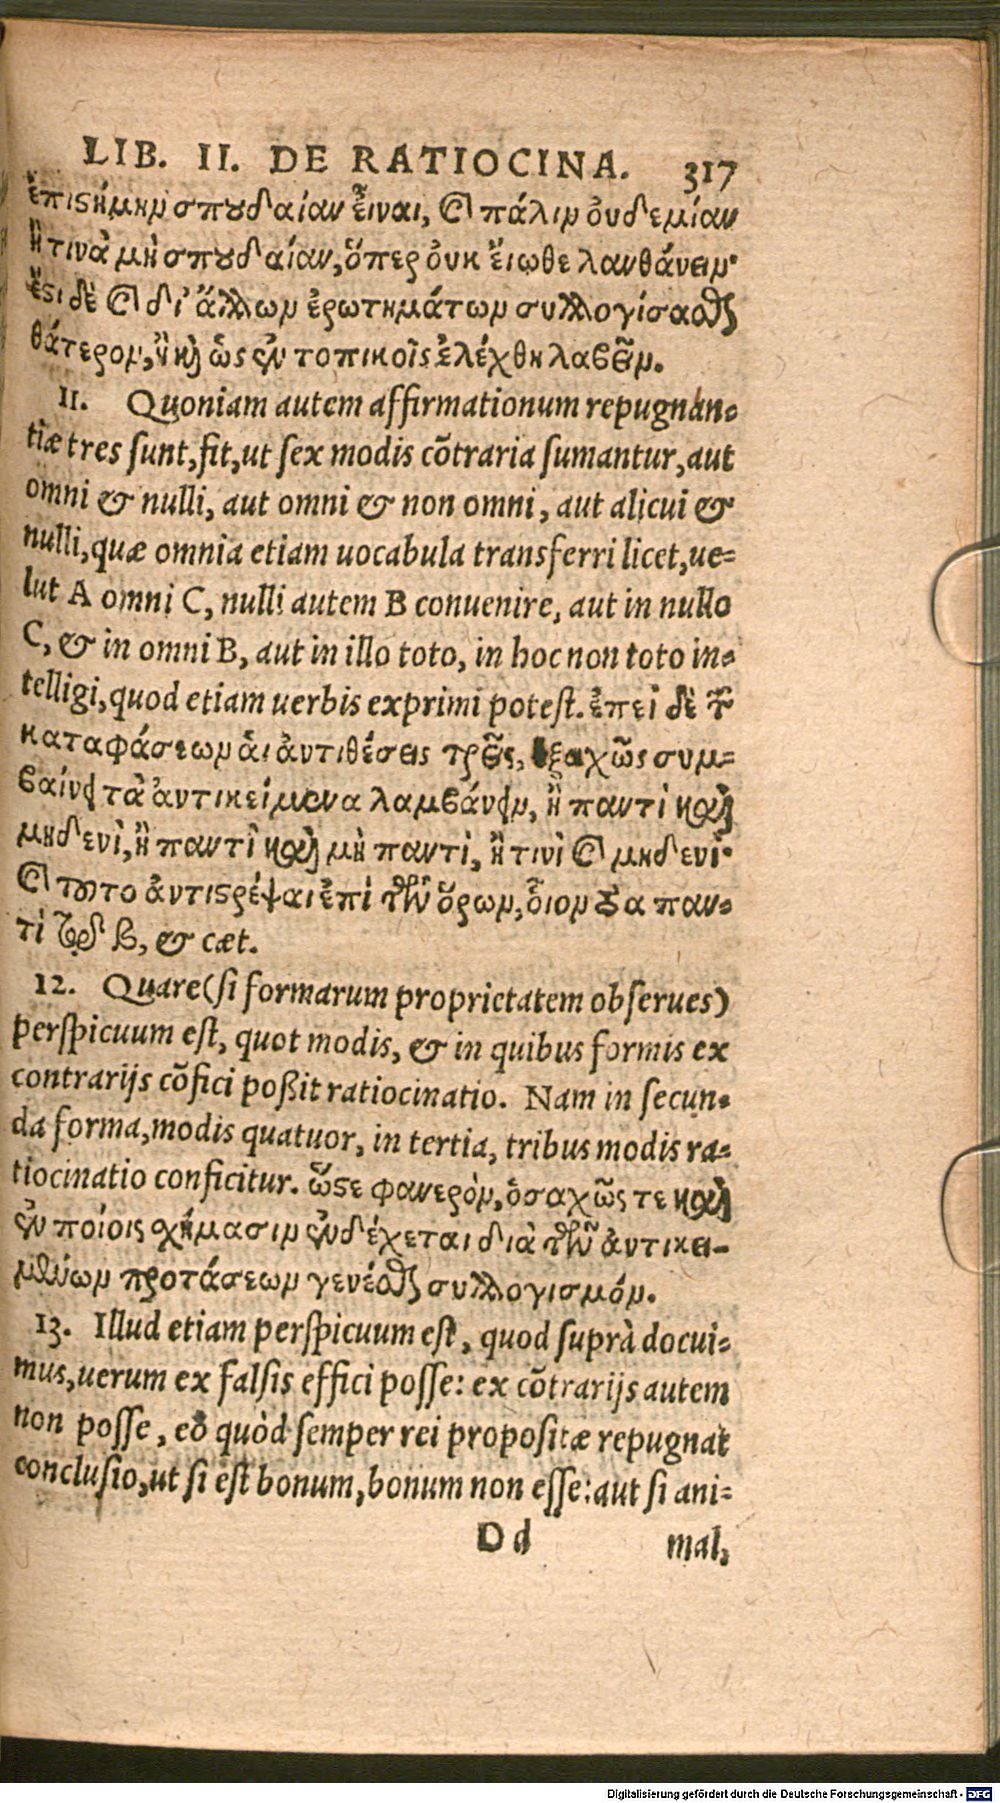 LIB. II. DE RATIOCINA. 317
ἐπιστήμην σπουδαίαν εἶναι, καὶ πάλιν οὐδεμίαν
ἢ τινὰ μὴ σπουδαίαν, ὅπερ οὐκ εἴωθε λανθάνειν·
ἔστι δὲ καὶ δι' ἄλλων ἐρωτημάτων συλλογίσασθαι
θάτερον, ἢ καὶ ὡς ἐν τοπικοῖς ἐλέχθη λαβεῖν.
11. Quoniam autem affirmationum repugnan-
tiæ tres sunt, fit, ut sex modis cõtraria sumantur, aut
omni & nulli, aut omni & non omni, aut alicui &
nulli, quæ omnia etiam uocabula transferri licet, ue-
lut A omni C, nulli autem B conuenire, aut in nullo
C, & in omni B, aut in illo toto, in hoc non toto in-
telligi, quod etiam uerbis exprimi potest. ἐπεὶ δὲ τῶν
καταφάσεων ἁι ἀντιθέσεις τρεῖς, ἑξαχῶς συμ-
βαίνει τὰ ἀντικείμενα λαμβάνειν, ἢ παντὶ καὶ
μηδενὶ, ἢ παντὶ καὶ μὴ παντί, ἢ τινὶ καὶ μηδενί·
καὶ τοῦτο ἀντιστρέψαι ἐπὶ τῶν ὅρων, οἷον τὸ α παν-
τὶ τῷ β, & cæt.
12. Quare (si formarum proprietatem obserues)
perspicuum est, quot modis, & in quibus formis ex
contrarijs cõfici poßit ratiocinatio. Nam in secun-
da forma, modis quatuor, in tertia, tribus modis ra-
tiocinatio conficitur. ὥστε φανερὸν, ὁσαχῶς τε καὶ
ἐν ποίοις σχήμασιν ἐνδέχεται διὰ τῶν ἀντικει-
μένων προτάσεων γενέσθαι συλλογισμόν.
13. Illud etiam perspicuum est, quod suprà docui-
mus, uerum ex falsis effici posse: ex cõtrarijs autem
non posse, eò quòd semper rei propositæ repugnat
conclusio, ut si est bonum, bonum non esse: aut si ani-
Dd mal,
Digitalisierung gefördert durch die Deutsche Forschungsgemeinschaft - DFG